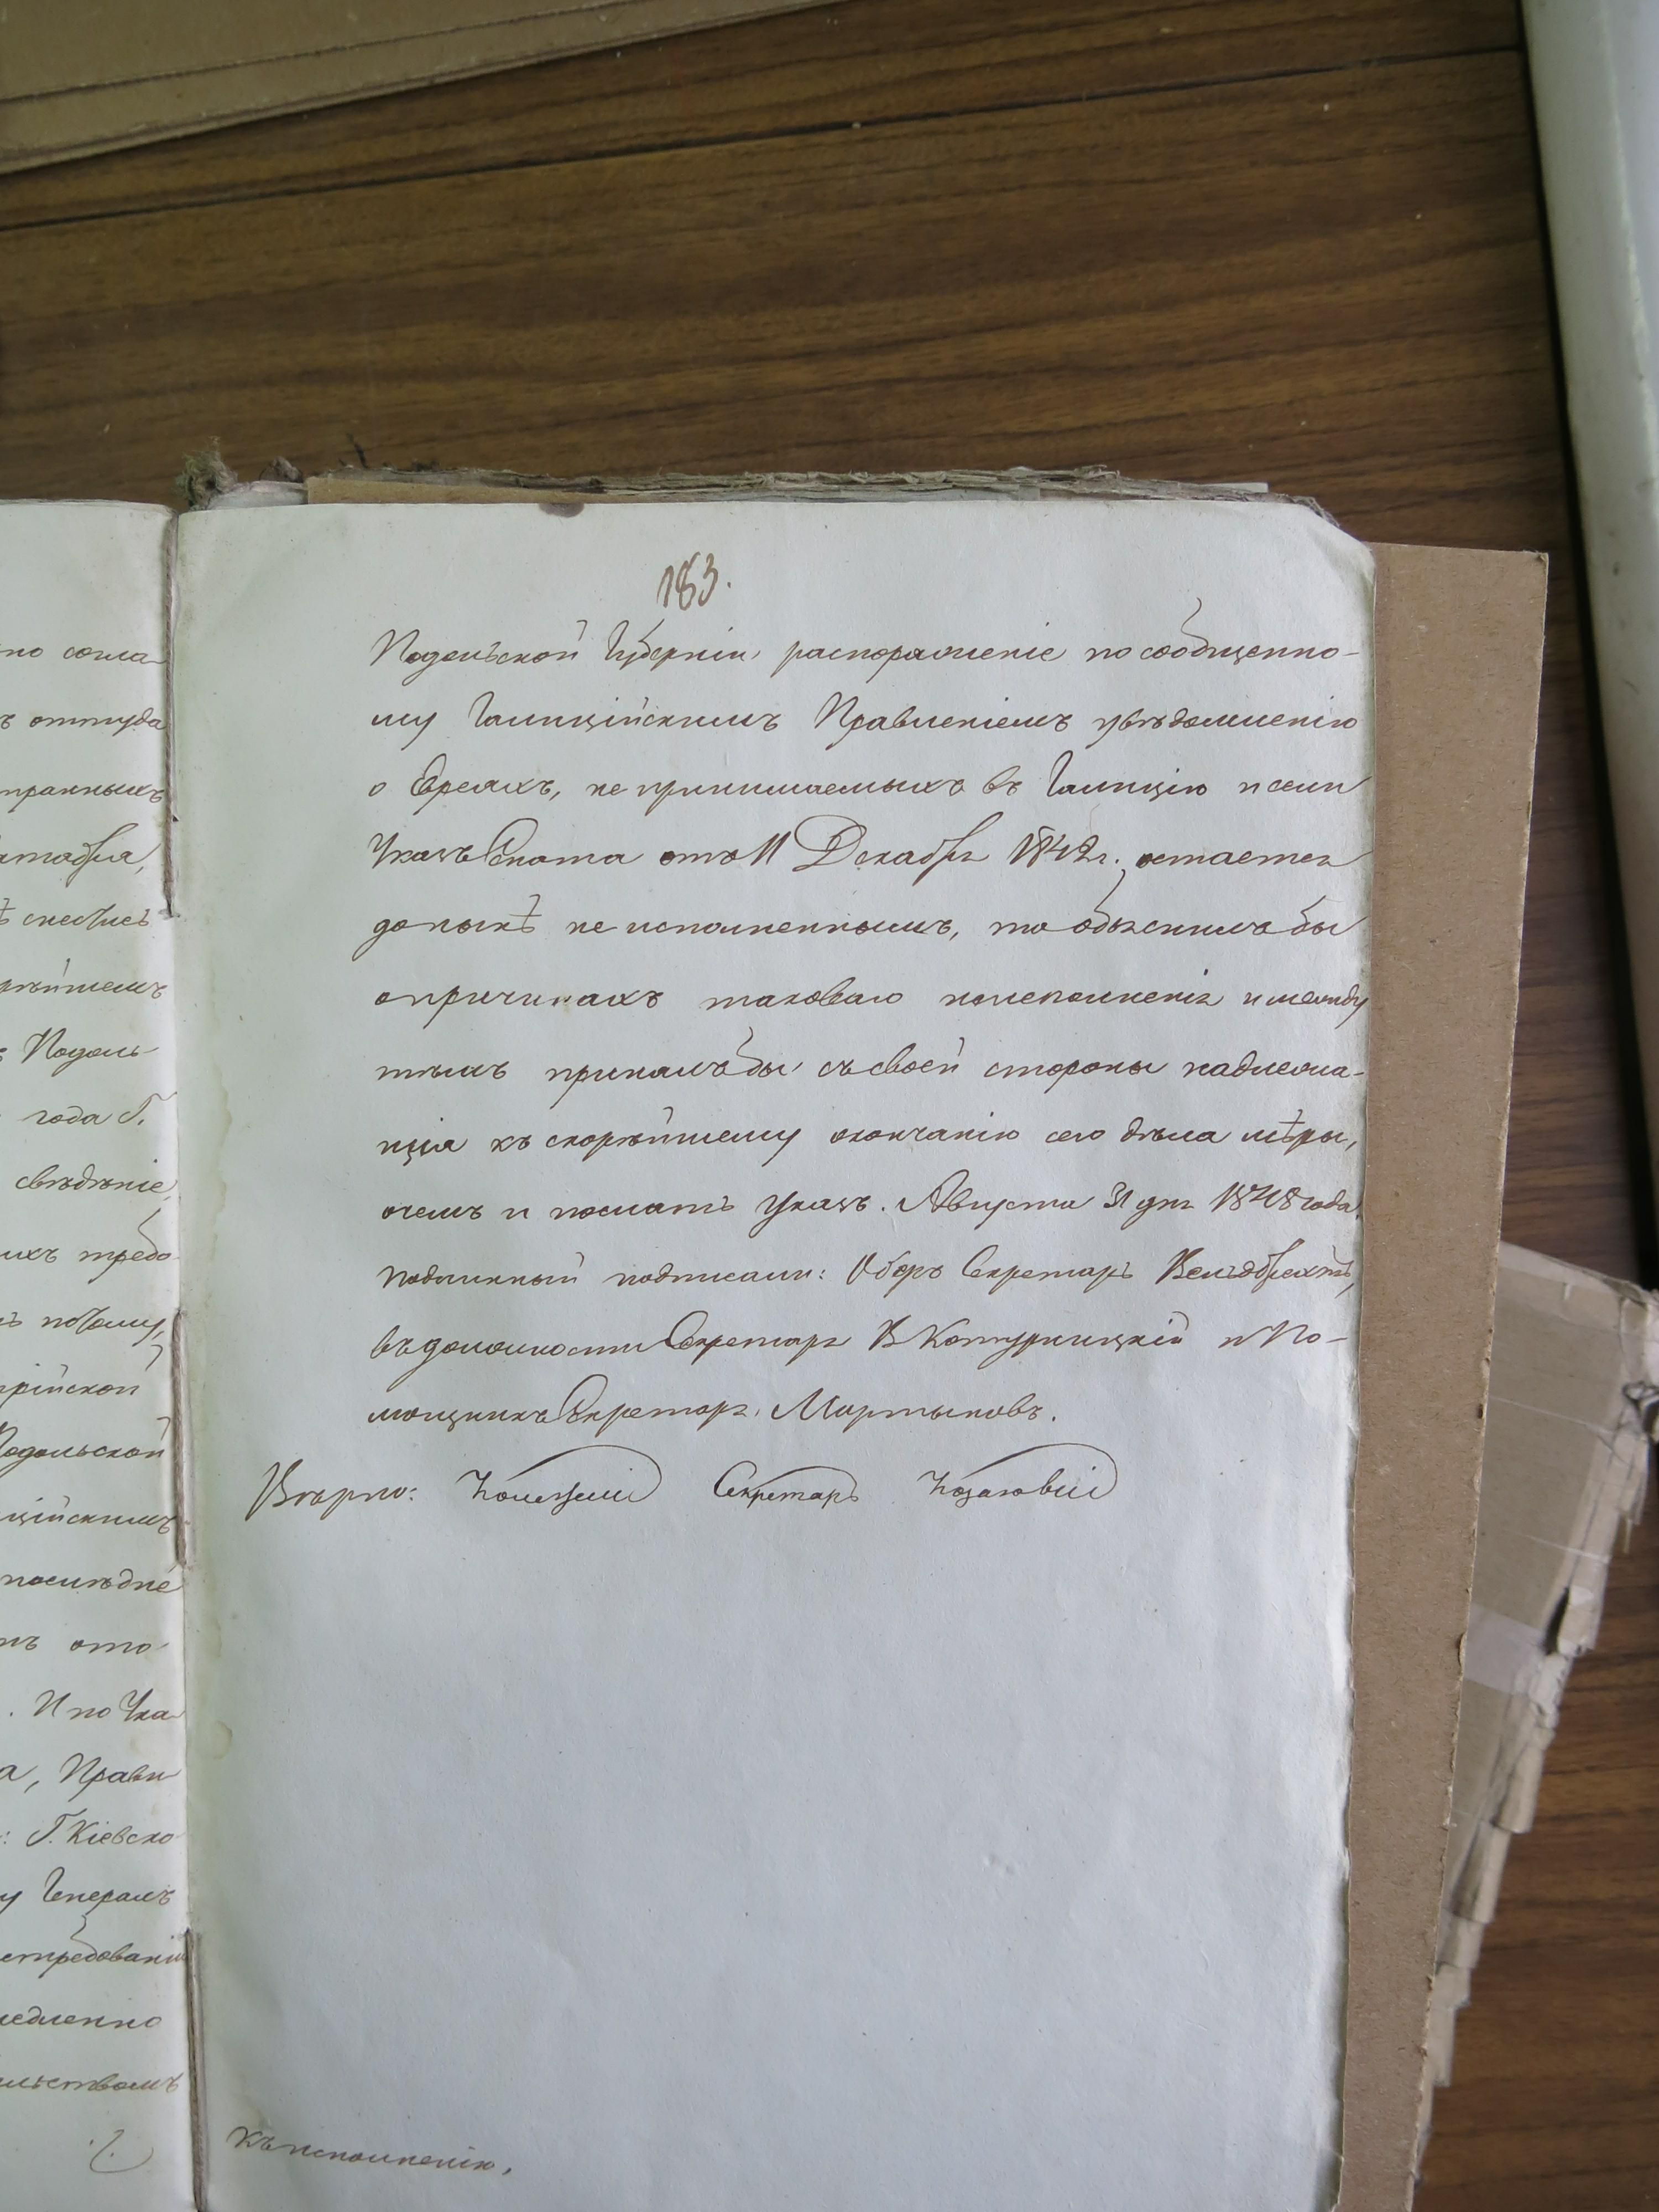 183.
Подольской Губерніи, распоряженіе по сообщенно-
му Галиційскимъ Правленіемъ увѣдомленію
о Евреяхъ, не принимаемыхъ въ Галицію и если
Указъ Сената отъ 11 Декабря 1842 г. остается
донынѣ не исполненнымъ, то объяснилъ бы
о причинахъ таковаго неисполненія и между
тѣмъ принялъ бы съ своей стороны надлежа-
щія къ скорѣйшему окончанію сего дѣла мѣры,
о чемъ и послать указъ. Августа 31 дня 1848 года.
Подлинный подписали: Оберъ Секретарь
въ должности Секретаря В Котурницкій и По-
мощникъ Секретаря, Мартыновъ.
Вѣрно: Секретарь
Къ исполненію.
но согла-
ъ оттуда
транныхъ
ктября,
ѣ снестись
рѣйшемъ
Подоль-
года Г.
свѣдѣніе,
ихъ требо-
ъ потому,
рійской
Подольской
ційскимъ
послѣдне
ъ отно-
. И по Ука-
а, Прави-
: Г. Кіевско-
у Генералъ
истребованіи
медленно
льствомъ